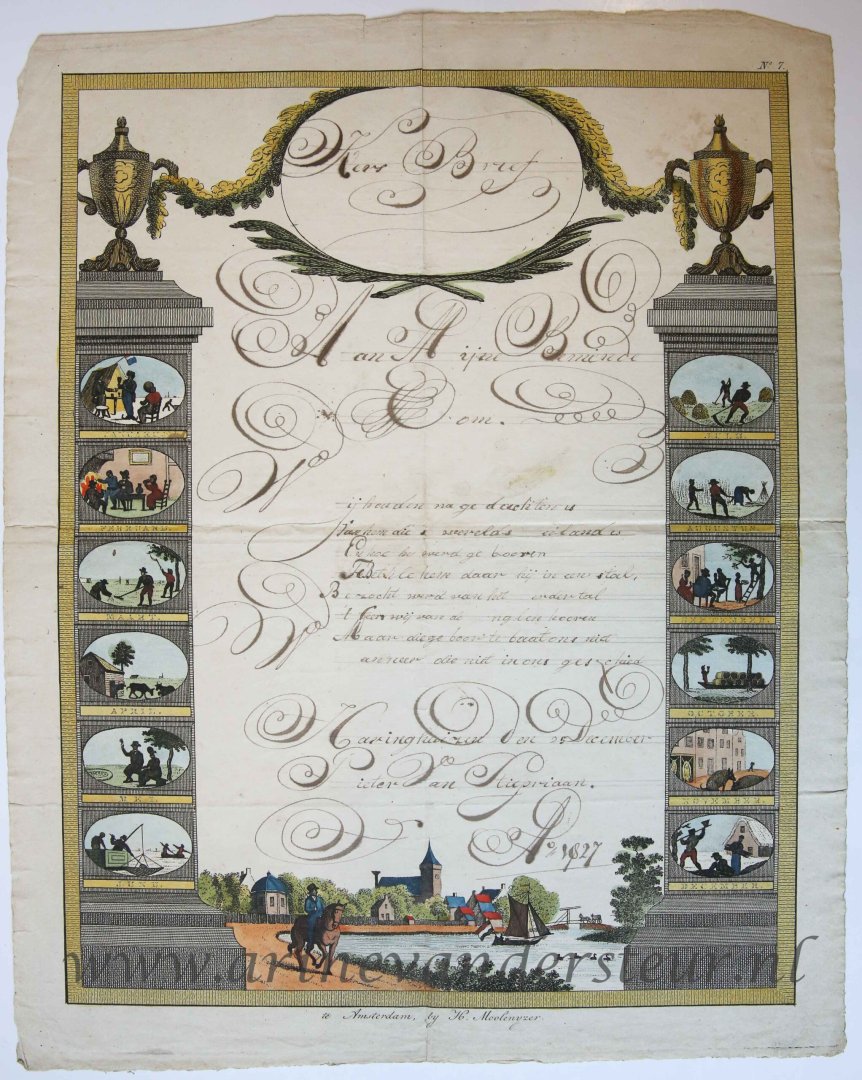 No. 7.
Kers Brief
Aan Mijn Beminde
Oom.
Wij houden na ge dachten is
werelds eiland is
En hoe hij werd ge booren
Bethlehem daar hij in een stal,
Bezocht werd van het
wij van de ngelen hooren
Maar die ge boorte baat ons niet
anneer die niet in ons geschied
Haringhuizen den 25 December
Pieter Van
Ao 1827
FEBRUARY.
MAART.
APRIL.
MEI.
JUNY.
JULY.
AUGUSTUS.
SEPTEMBER.
OCTOBER.
NOVEMBER.
DECEMBER.
te Amsterdam, by H. Moolenyzer.
www.arinevandersteur.nl